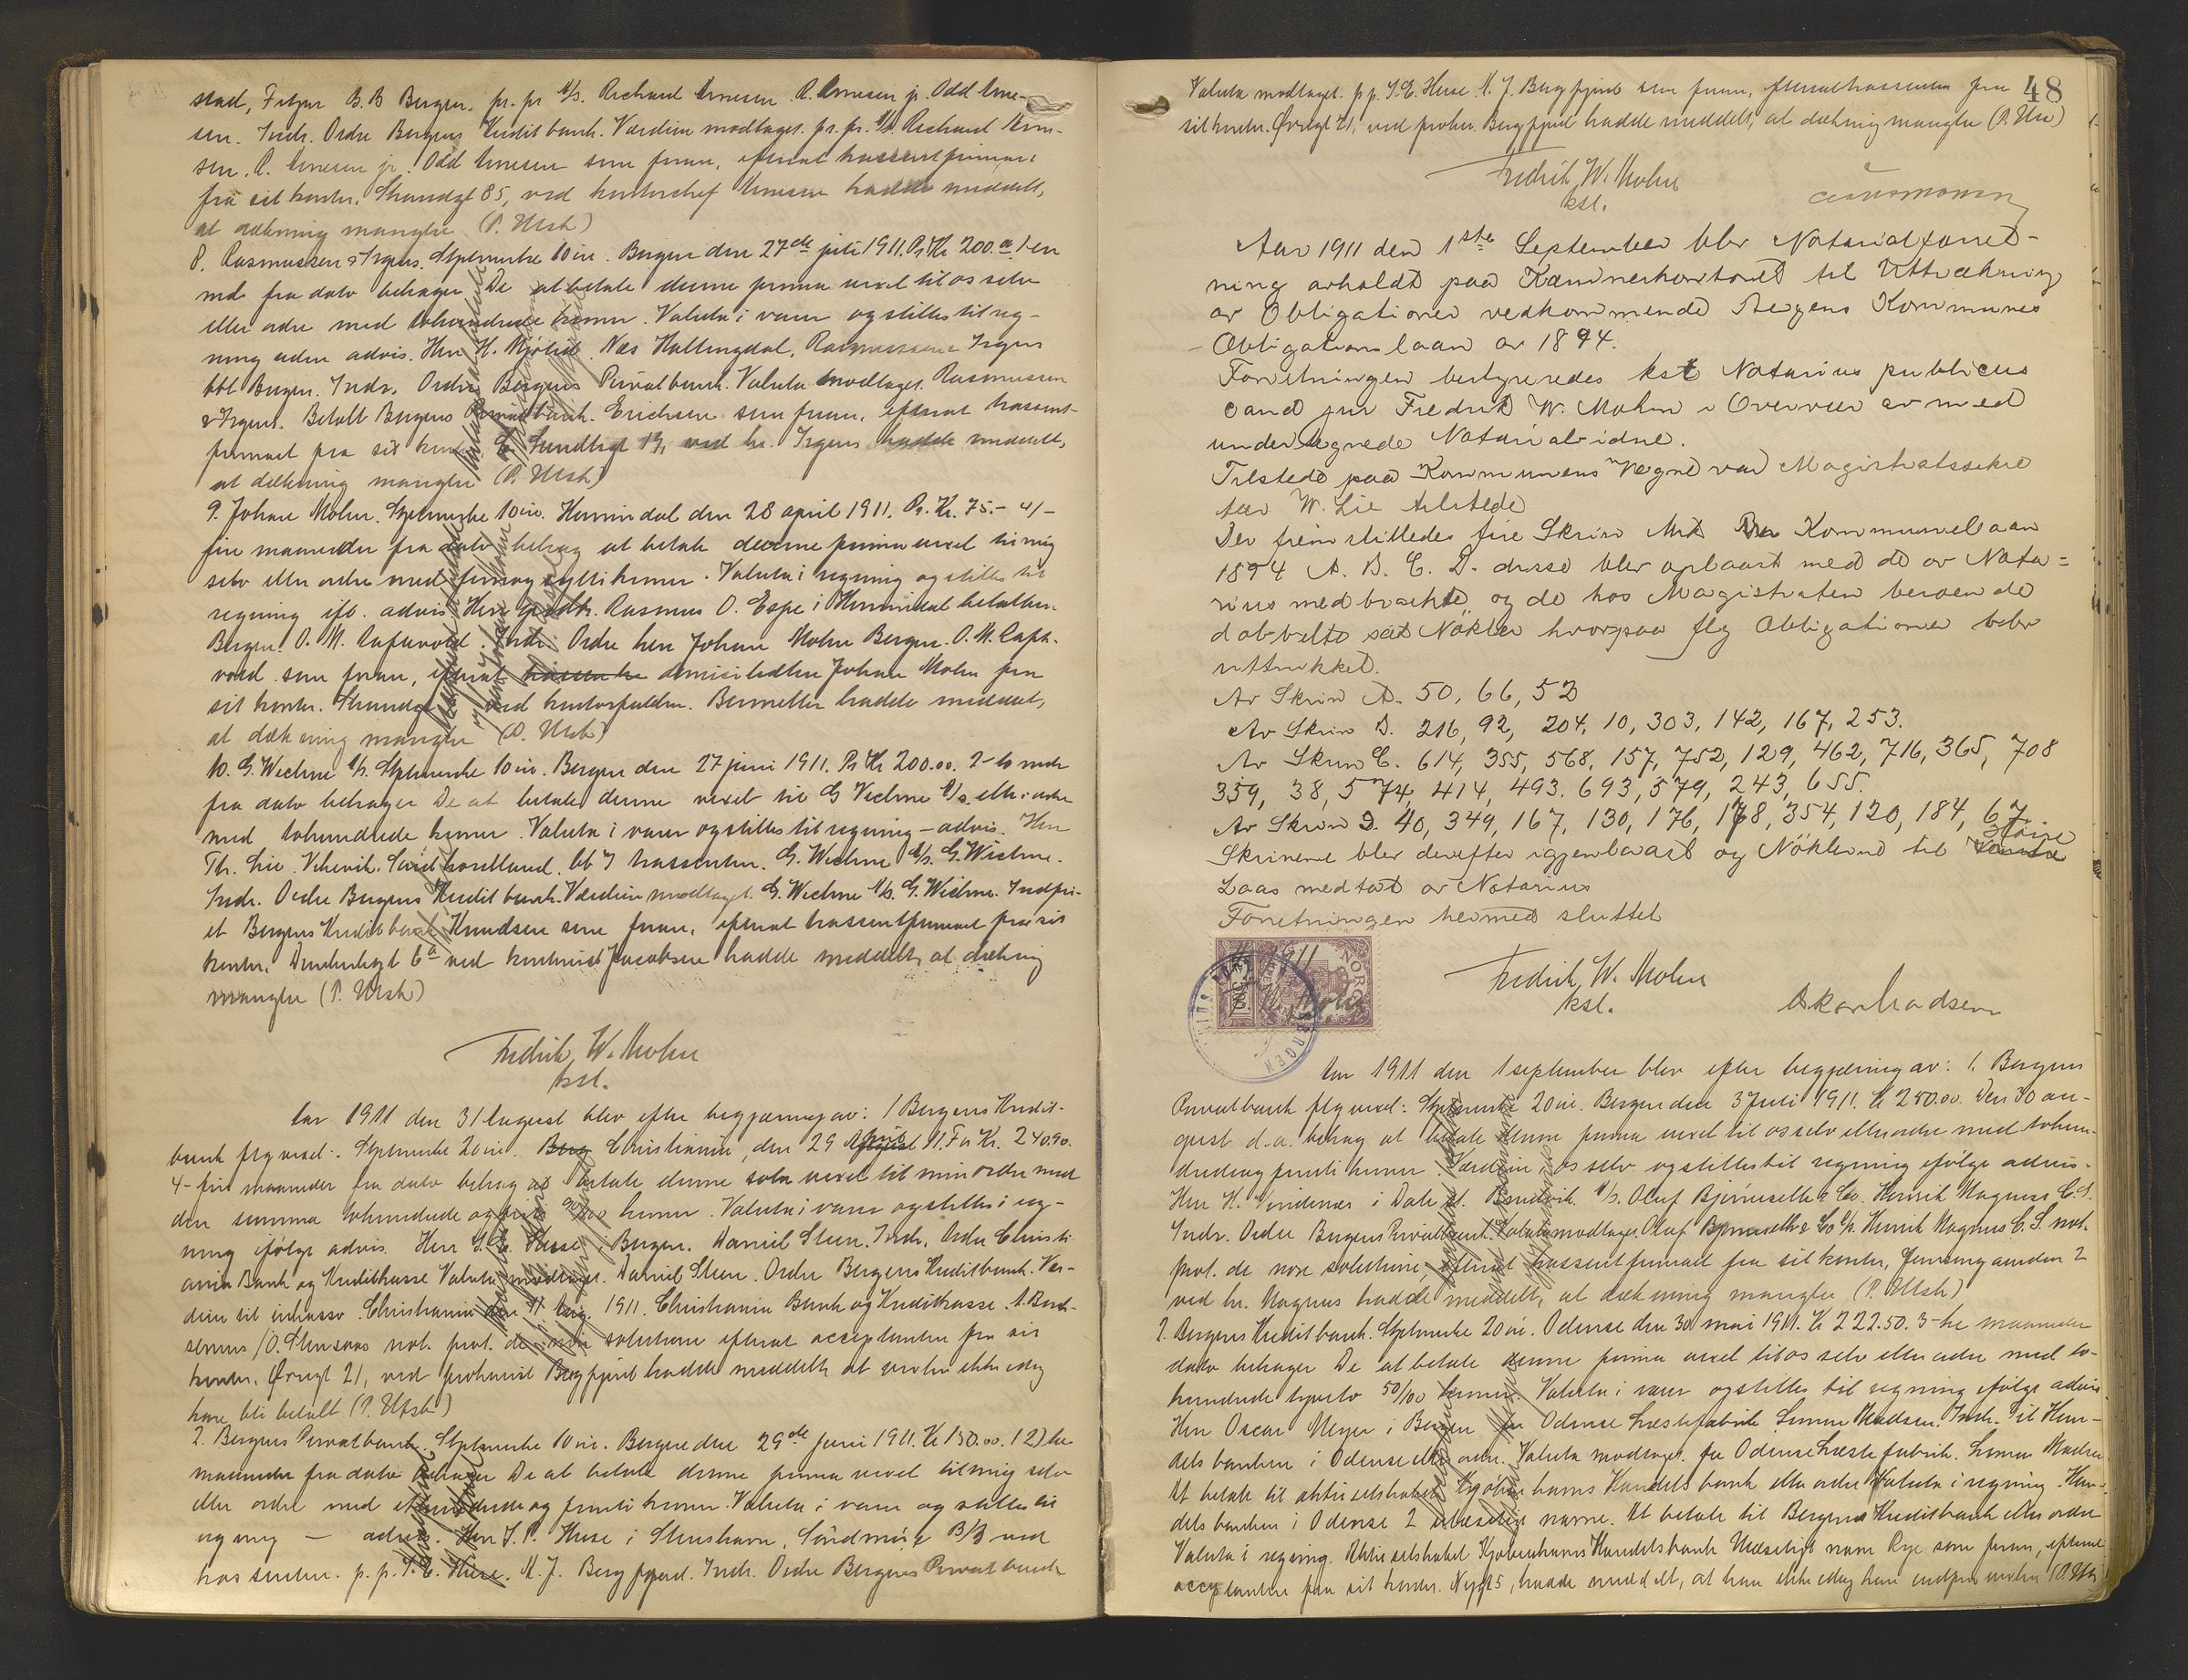 stad, Fitjar B.B Bergen. pr. pr A/S. Richard Arnesen. R. Arnesen jr. Odd Arne-
sen. Indr. Ordre Bergens Kreditbank. Værdien modtaget. pr. pr. A/S. Richard Arne-
sen. R. Arnesen jr. Odd Arnesen som foran, efterat
fra sit kontor, Strandgt 85, ved kontorchef Arnesen hadde meddelt,
at dækning mangler (P. Utsk)
8. Rasmussen & Irgens. Stplmerke 10 øre. Bergen den 27de juli 1911. Pr. Kr 200.00 1-en
md. fra dato behager De at betale denne prima vexel til os selv
eller ordre med tohundrede kroner. Valuta i varer og stilles til reg-
ning uden advis. Herr Næs Hallingdal, Rasmussen Irgens
bbt Bergen. Indr. Ordre Bergens Privatbank. Valuta modtaget. Rasmussen
& Irgens. Betalt Bergens Privatbank. Erichsen som foran, efterat trassent-
firmaet fra sit kontor ved hr. Irgens hadde meddelt,
at dækning mangler (P. Utsk)
9. Johan Mohn. Stplmerke 10 øre. den 28 april 1911. Pr. Kr. 75.- 4/-
fire maaneder fra dato behag at betale denne prima vexel til mig
selv eller ordre med femogsytti kroner. Valuta i regning og stilles til
regning ifl. advis Herr Rasmus O. Espe i betalbar
Bergen. O. M. Indr. Ordre herr Johan Mohn Bergen. O. M.
vold som foran, efterat domiciliaten Johan Mohn fra
sit kontor. Strandgt ved hadde meddelt,
at dækning mangler (P. Utsk)
10. G. Wichne A/S. Stplmerke 10 øre. Bergen den 27 juni 1911. Pr Kr 200.00. 2-to mdr
fra dato behager De at betale denne vexel til G Wichne A/S eller ordre
med tohundrede kroner. Valuta i varer og stilles til regning - advis. Herr
Th. Lie. trassenten. G. Wichne A/S. G. Wichne.
Indr. Ordre Bergens Kreditbank. Værdien modtaget. G. Wichne A/S. G. Wichne.
et Bergens Kreditbank Knudsen som foran, efterat trassentfirmaet fra sit
kontor, 6a ved kontorist Jacobsen hadde meddelt, at dækning
mangler (P. Utsk)
Fredrik W. Mohn
kst.
Aar 1911 den 31 August blev efter begjæring av: 1 Bergens Kredit-
bank flg vexel: Stplmerke 20 øre. Christiania, den 29 April 11. For Kr. 240.90.
4- fire maaneder fra dato behag at betale denne sola vexel til min ordre med
den summa tohundrede og 90/100 kroner. Valuta i varer og stilles i reg-
ning ifølge advis. Herr i Bergen. Daniel Steen. Indr. Ordre Christi-
ania Bank og Kreditkasse Valuta modtaget. Daniel Steen. Ordre Bergens Kreditbank. Vær-
dien til inkasso. Christiania den 11 Aug. 1911. Christiania Bank og Kreditkasse.
not. prot. de non solutione efterat acceptanten fra sit
kontor. Øvregt 21, ved prokurist Bergfjord hadde meddelt, at vexlen ikke idag
kan bli betalt (P. Utsk)
2. Bergens Privatbank. Stplmerke 10 øre. Bergen den 29de Juni 1911. Kr 150.00. (2) to
maaneder fra dato behager De at betale denne prima vexel til mig selv
eller ordre med ethundrede og femti kroner. Valuta i varer og stilles til
regning - advis. Herr Huse i Søndmøre B/B ved
trassenten. p. p. M. J. Bergfjord. Indr. Ordre Bergens Privatbank
48
Valuta modtaget. p p. Huse. M. J. Bergfjord som foran, efterat trassenten fra
sit kontor. Øvregt 21, ved prokur. Bergfjord hadde meddelt, at dækning mangler (P. Utsk)
Fredrik W. Mohn
kst.
Aar 1911 den 1ste September blev Notarialforret-
ning avholdt paa Kæmnerkontoret til Uttrækning
av Obligationer vedkommende Bergens Kommunes
Obligationslaan av 1894.
Forretningen bestyredes kst Notarius publicus
cand jur Fredrik W. Mohn i Overvær av med
undertegnede Notarialvidne.
Tilstede paa Kommunens Vegne var Magistratssekre
tær W. Lie tilstede
Der fremstilledes fire Skrin Mrk Kommunelaan
1894 A. B. C. D. disse blev oplaast med de av Nota=
rius medbrachte og de hos Magistraten beroende
dobbelte sæt Nøkler hvorpaa flg Obligationer blev
uttrukket.
Av Skrin A. 50, 66, 52
Av Skrin B. 216, 92, 204, 10, 303, 142, 167, 253.
Av Skrin C. 614, 355, 568, 157, 752, 129, 462, 716, 365, 708
359, 38, 574, 414, 493, 693, 579, 243, 655.
Av Skrin D. 40, 349, 167, 130, 176, 178, 354, 120, 184, 67.
Skrinene blev derefter igjenlaast og Nøklerne til høire
Laas medtat av Notarius
Forretningen hermed sluttet
1911
NORGE
BERGEN
Fredrik W. Mohn
kst.
Oskar Madsen
Aar 1911 den 1 september blev efter begjæring av: 1. Bergens
Privatbank flg vexel: Stplmerke 20 øre. Bergen den 3 Juli 1911. Kr 250.00. Den 30 au-
gust d.a. behag at betale denne prima vexel til os selv eller ordre med tohun-
drede og femti kroner. Værdien i os selv og stilles til regning ifølge advis.
Herr H. Vindenes i Dale A/S. Oluf Bjørneseth & Co. Henrik Magnus C.S.
Indr. Ordre Bergens Privatbank. Valuta modtaget. Oluf Bjørneseth & Co A/S. Henrik Magnus C.S. not.
prot. de non solutione, efterat trassentfirmaet fra sit kontor,
ved hr. Magnus hadde meddelt, at dækning mangler (P. Utsk)
2. Bergens Kreditbank. Stplmerke 20 øre. Odense den 30 mai 1911. Kr 222.50. 3-tre maaneder
dato behager De at betale denne prima vexel til os selv eller ordre med to-
hundrede tyveto 50/100 kroner. Valuta i varer og stilles til regning ifølge advis
Herr Oscar Meyer i Bergen for Odense Læstefabrik Simon Madsen. Indr. Til Han-
delsbanken i Odense eller ordre. Valuta modtaget. for Odense Læstefabrik. Simon Madsen
At betale til aktieselskabet Kjøbenhavns Handelsbank eller ordre Valuta i regning. Han-
delsbanken i Odense 2 ulæselige navne. At betale til Bergens Kreditbank eller ordre
Valuta i regning. Aktieselskabet Kjøbenhavns Handelsbank Ulæseligt navn Rye som foran, efterat
acceptanten fra sit kontor. hadde meddelt, at han ikke idag kan indfri vexlen (P. Utsk)